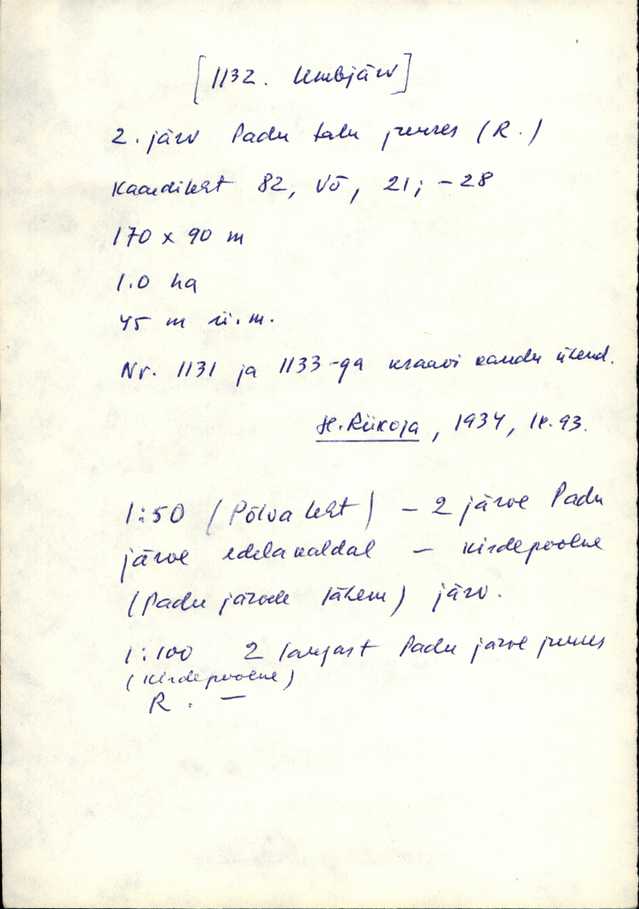 [1132. Umbjärv]
2. järv Padu talu juures (R.)
Kaardileht 82, Võ, 21; -28
170 x 90 m
1.0 ha
45 m ü.m.
Nr. 1131 ja 1133-ga kraavi kaudu ühend.
H. Riikoja, 1934, lk. 93.
1:50 (Põlva leht) - 2 järve Padu
järve edelakaldal - kirdepoolne
(Padu järvele lähem) järv.
1:100 2 laugast Padu järve juures
(kirdepoolne)
R. -